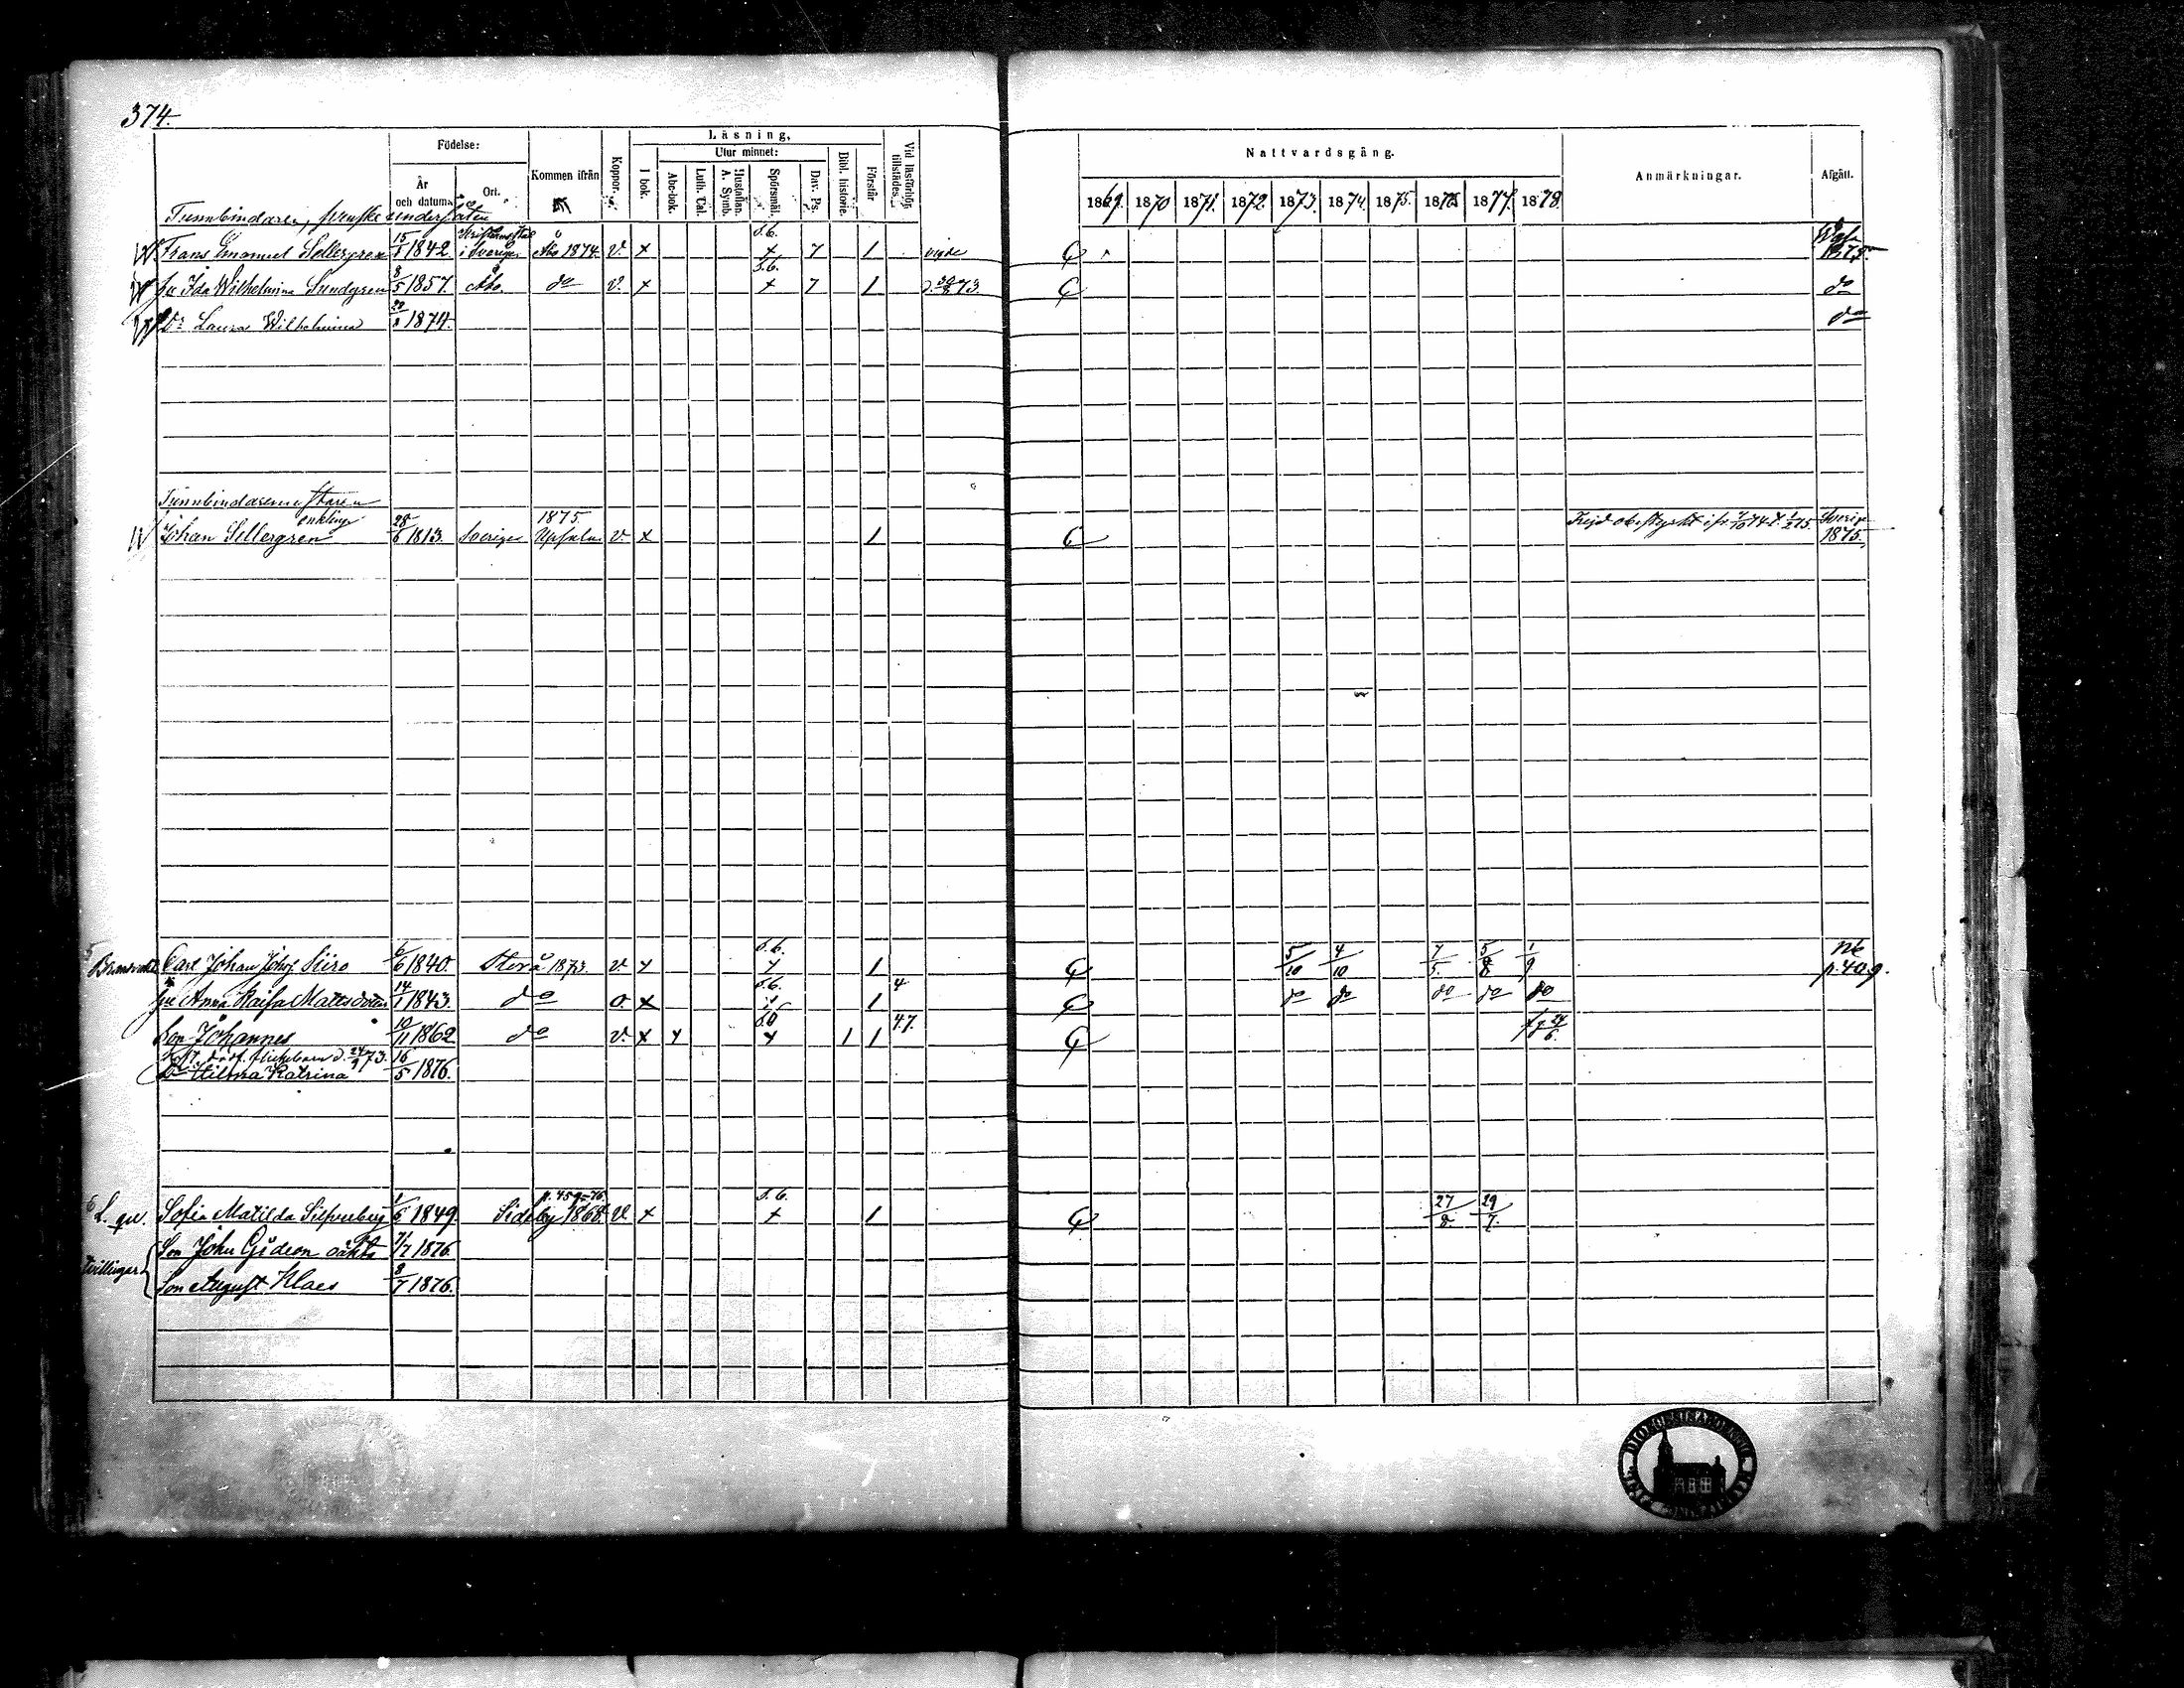 374.
Födelse:
Läsning,
Utur minnet:
År och datum.
Ort.
Kommen ifrån
Koppor.
I bok.
Abc-bok.
Luth. Cat.
Hustaflan. A. Symb.
Spörsmål.
Dav. Ps.
Bibl. historie.
Förstår
Vid läsförhör tillstädes.
Nattvardsgång.
1869. 1870 1871. 1872. 1873. 1874. 1875. 1876 1877. 1878.
Anmärkningar.
Afgått.
Tunnbindaren, svenske undersåten
Frans Emanuel Sellergren 15/1 1842. i Sverige Åbo 1874. v. x s.b. x 7 1 vigde 1875.
hu Ida Wilhelmina Sundgren 8/5 1857. Åbo. do v. x s.b. x 7 1 73. do
Dr Laura Wilhelmina 1874. do
Tunnbindaremästaren
enkling
Johan Sellergren 28/6 1813. Sverige 1875. Upsala v. x 1 Sverige 1875.
5 Carl Johan Johsf Siiro 6/6 1840. Storå 1873. v. x s.b. x 1 5/10 4/10 7/5 5/8 1/9 p. 409.
hu Anna Kaisa Mattsdotter 14/1 1843. do o. x s.b. 1 4 do do do do do
Son Johannes 10/11 1862 do v. x x x 1 1 4.7. 24/6.
dödf. flickebarn d. 24/9 73.
Dr Hilma Katrina 16/5 1876.
6 L. qv. Sofia Matilda Silfverberg 1/6 1849 Sideby p. 459-76. 1868. v. x s.b. x 1 27/8. 29/7.
tvillingar
Son John Gideon oäkta 7/7 1876.
Son August Klaes 8/7 1876.